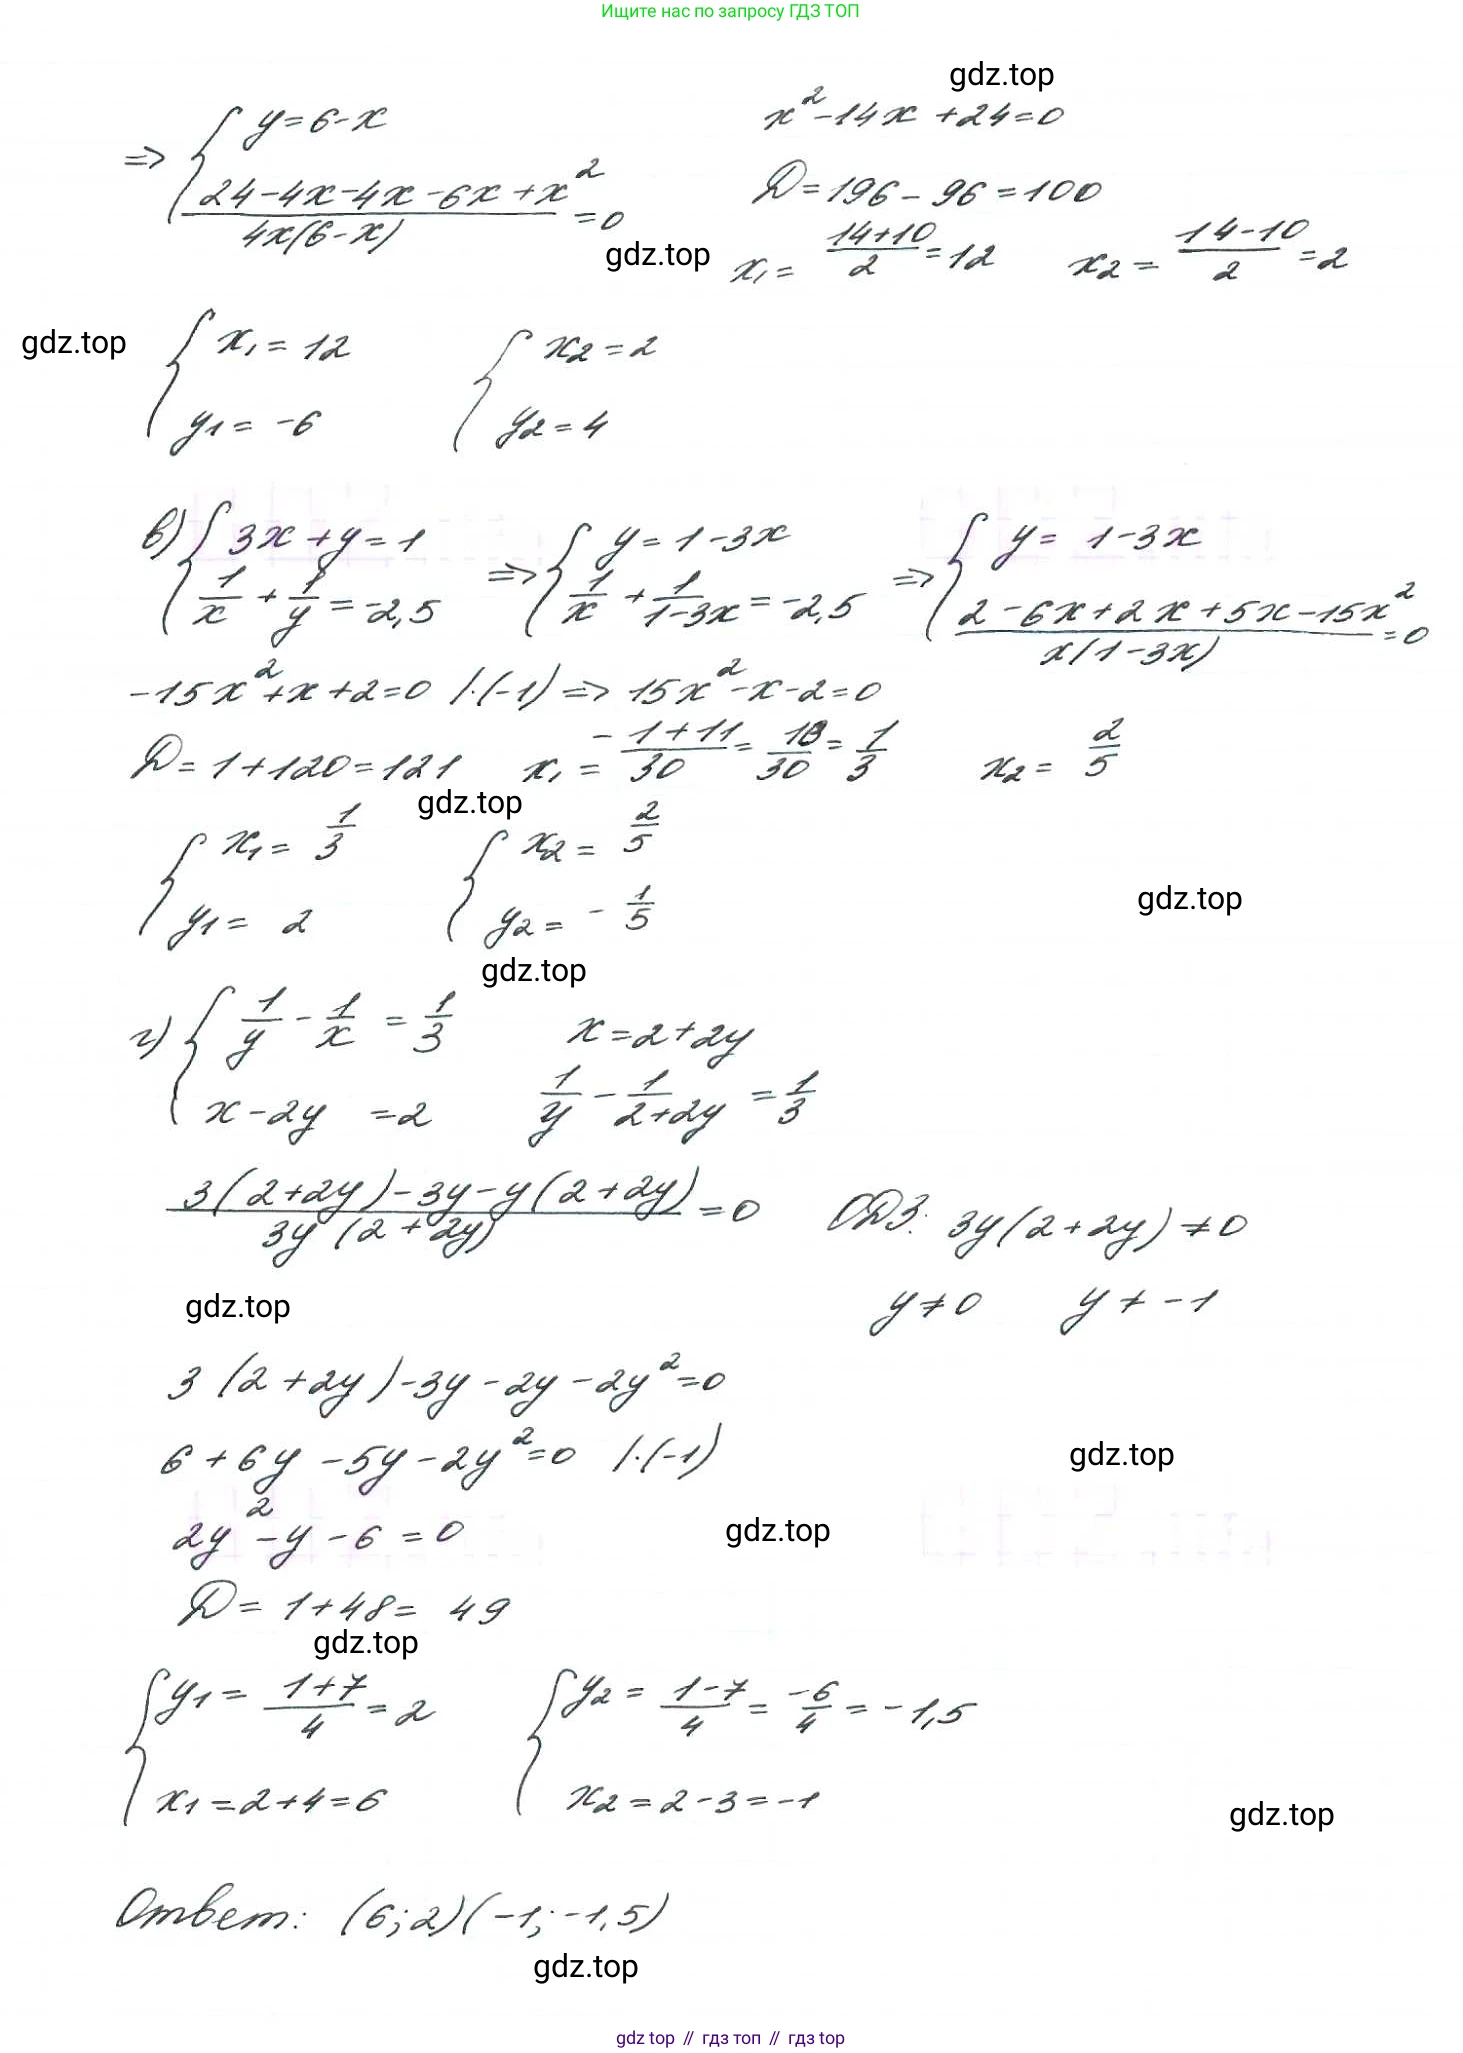 Ищите нас по запросу ГДЗ ТОП
gdz.top
⇒ { y = 6 - x
(24 - 4x - 4x - 6x + x²) / (4x(6 - x)) = 0
x² - 14x + 24 = 0
D = 196 - 96 = 100
gdz.top
x₁ = (14+10)/2 = 12 x₂ = (14-10)/2 = 2
gdz.top
{ x₁ = 12 { x₂ = 2
y₁ = -6 y₂ = 4
в) { 3x + y = 1 ⇒ { y = 1 - 3x ⇒ { y = 1 - 3x
1/x + 1/y = -2,5 1/x + 1/(1-3x) = -2,5 (2 - 6x + 2x + 5x - 15x²) / (x(1 - 3x)) = 0
-15x² + x + 2 = 0 /·(-1) ⇒ 15x² - x - 2 = 0
D = 1 + 120 = 121 x₁ = -(1+11)/30 = 10/30 = 1/3 x₂ = 2/5
gdz.top
{ x₁ = 1/3 { x₂ = 2/5
y₁ = 2 y₂ = -1/5
gdz.top
gdz.top
г) { 1/y - 1/x = 1/3 x = 2 + 2y
x - 2y = 2 1/y - 1/(2+2y) = 1/3
(3(2+2y) - 3y - y(2+2y)) / (3y(2+2y)) = 0 ОДЗ: 3y(2+2y) ≠ 0
gdz.top
y ≠ 0 y ≠ -1
3(2+2y) - 3y - 2y - 2y² = 0
6 + 6y - 5y - 2y² = 0 /·(-1)
gdz.top
2y² - y - 6 = 0
gdz.top
D = 1 + 48 = 49
gdz.top
{ y₁ = (1+7)/4 = 2 { y₂ = (1-7)/4 = -6/4 = -1,5
x₁ = 2 + 4 = 6 x₂ = 2 - 3 = -1
gdz.top
Ответ: (6; 2) (-1; -1,5)
gdz.top
gdz top // гдз топ // гдз top